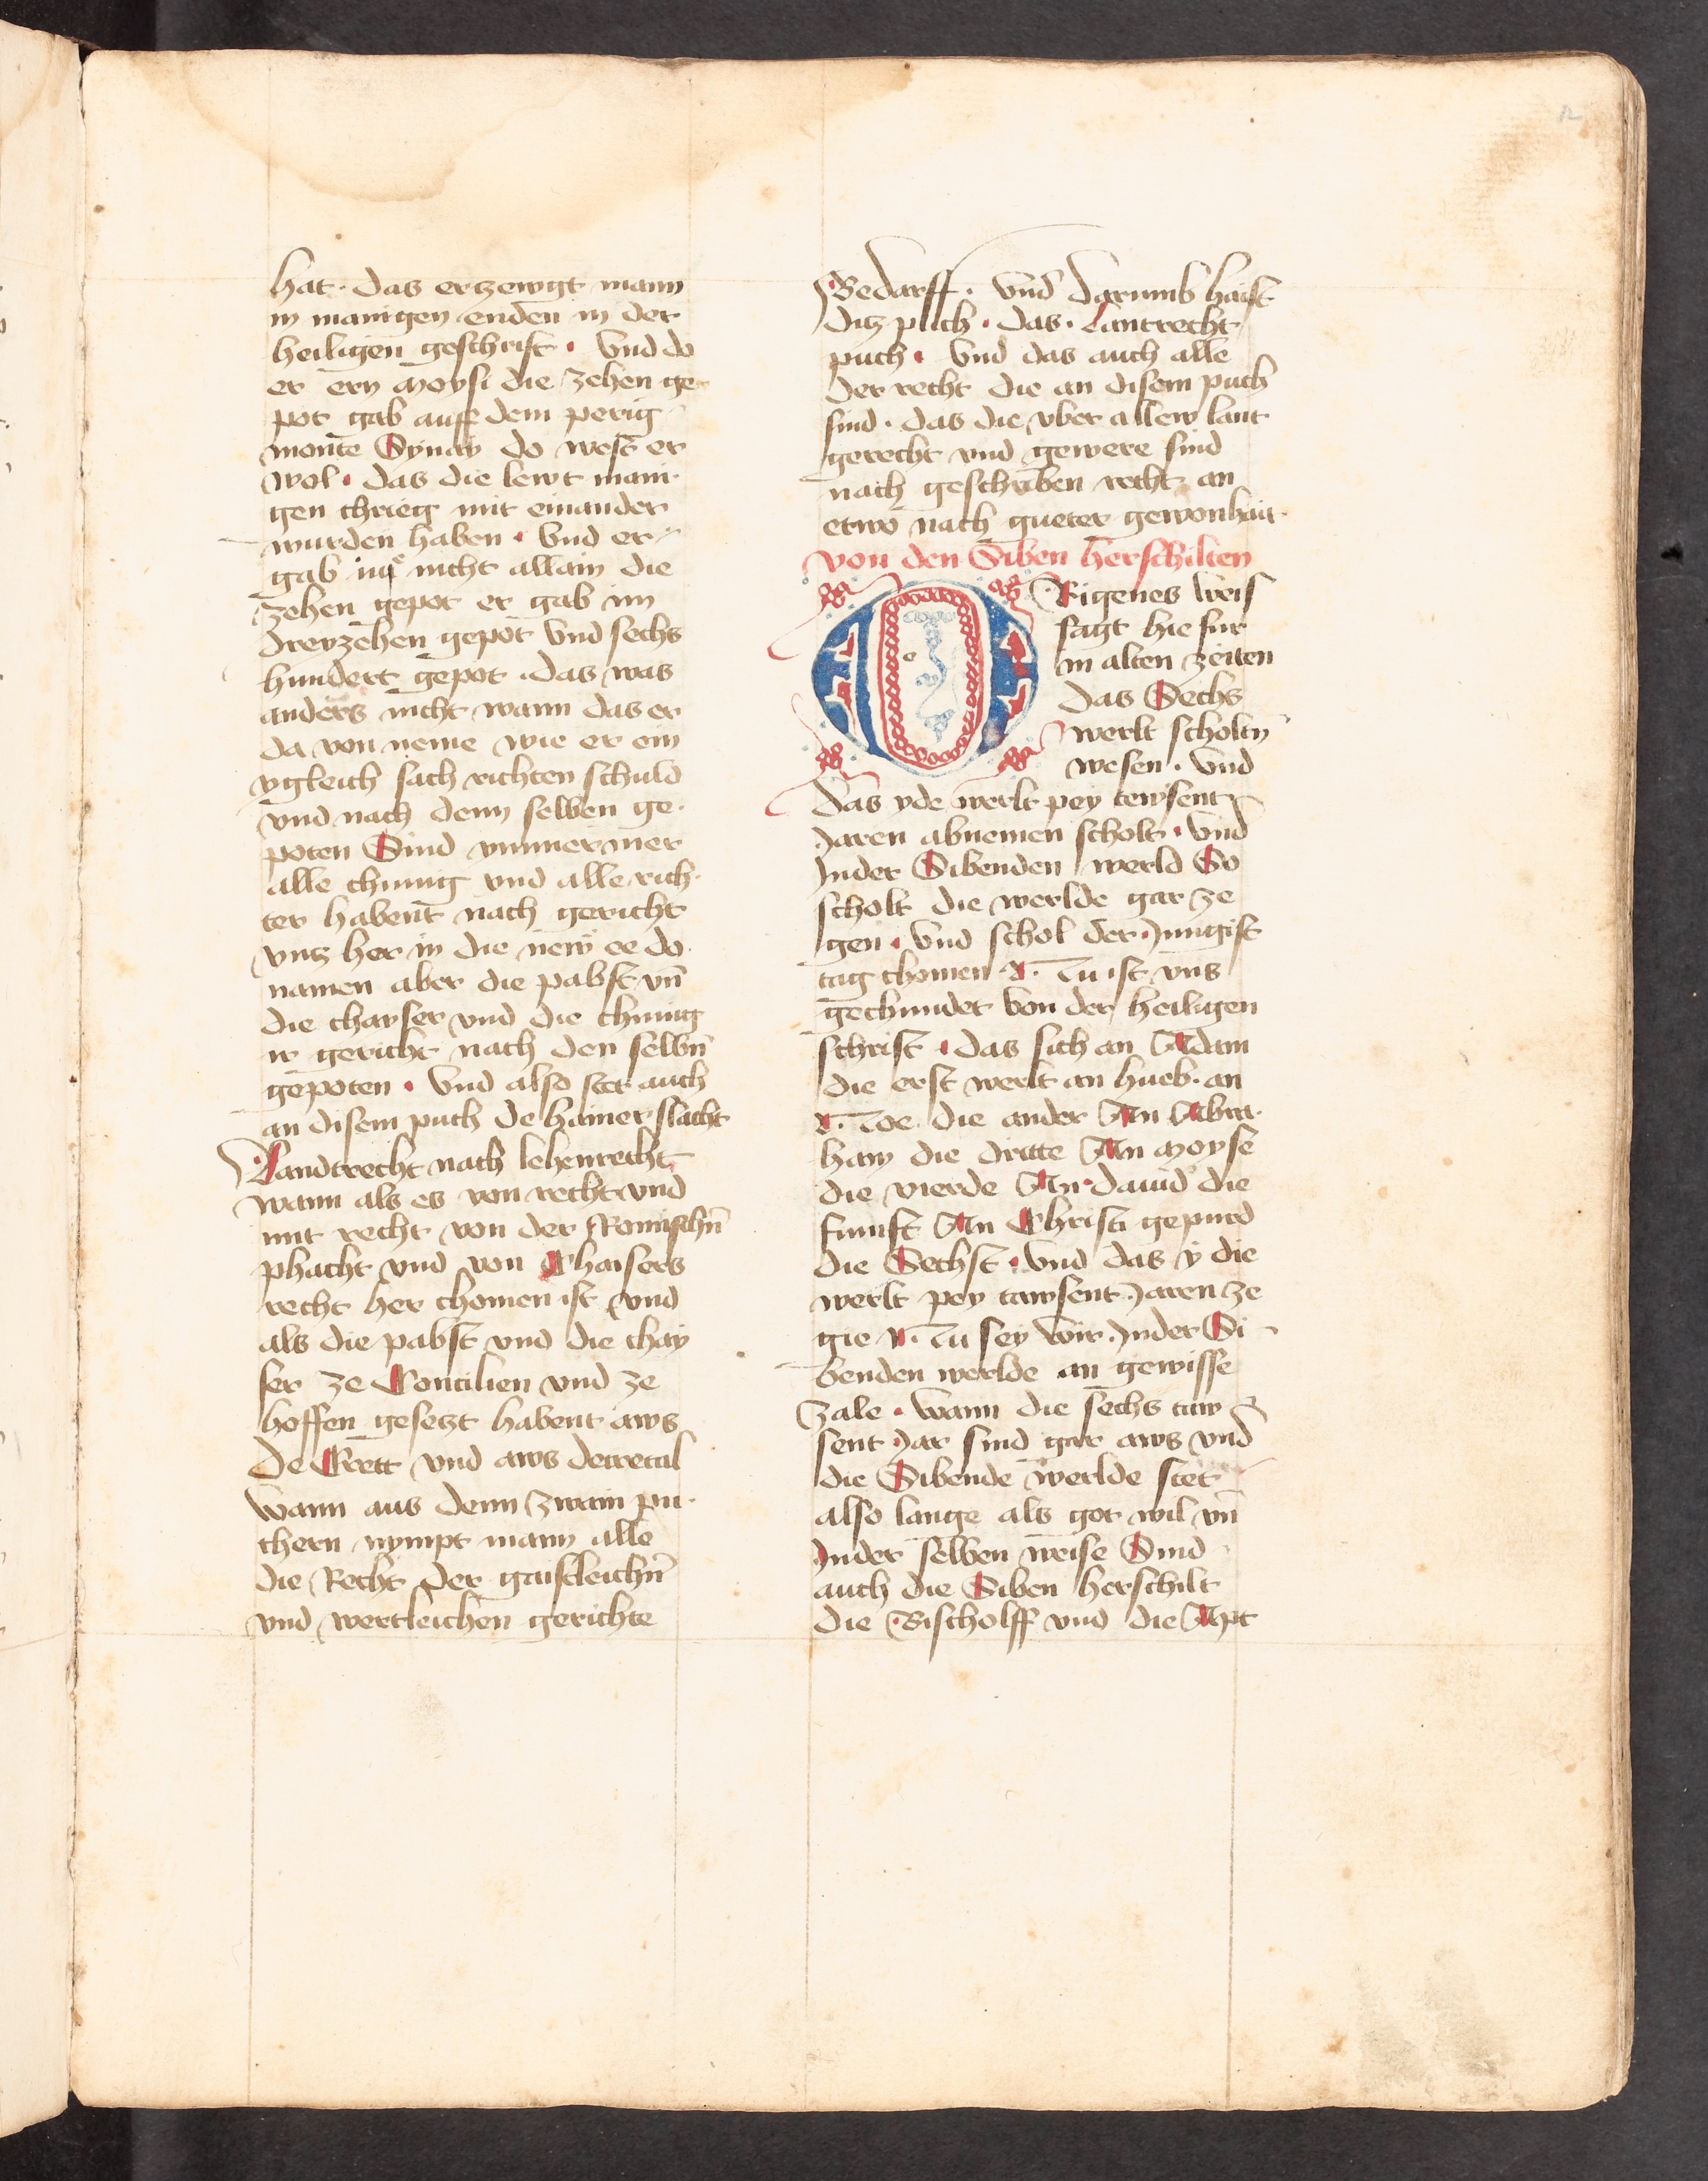 12
hat · das erzewgt mann
in manigen enden in der
heiligen geschrift · Vnd do
er ern Moysi die zehen ge-
pot gab auff dem perig
monte Synay do west er
wol · das die lewt mani-
gen chrieg mit einander
wurden haben · Vnd er
gab im nicht allain die
zehen gepot er gab im
dreyzehen gepot Vnd sechs
hundert gepot · das was
anders nicht wann das er
da von neme wie er ein
ygleich sach richten schuld
vnd nach denn selben ge-
poten Sind ymmermer
alle chunig vnd alle rich-
ter habent nach gericht
vntz her in die new ee do
namen aber die pabst vn̄
die chayser vnd die chunig
ir gericht nach den selbn̄
gepoten · Vnd also stet auch
an disem puch de hainer slacht
Landtrecht nach lehenrecht
wann als es von recht vnd
mit recht von der Romischn̄
phacht vnd von Chaisers
recht her chomen ist vnd
als die pabst vnd die chay
ser ze Concilien vnd ze
hoffen gesetzt habent aws
De Crett vnd aws decretal
Wann aus denn zwain pu-
chern nympt mann alle
die Recht der gaistleichn̄
vnd wertleichen gerichte
Bedarff · Vnd darumb haist
ditz puch · das · Lantrecht
puch · Vnd das auch alle
der recht die an disem puch
sind · das die vber allew lant
gerecht vnd gewere sind
nach geschriben recht an
etwo nach gueter gewonhait
Von den Siben herschilten
ORigenes Weis
sagt hie fur
in alten zeiten
das Sechs
werlt scholtn̄
wesen · Vnd
das yde werlt pey tewsent
Jaren abnemen scholt · Vnd
Inder Sibenden werld So
scholt die werlde gar ze
gen · Vnd schol der Jungist
tag chomen · Nu ist vns
gechundet Von der heiligen
schrift · das sich an Adam
die erst werlt an hueb · an
Noe die ander An Abra-
ham die dritte An Moyse
die vierde An · dauid die
funft An Christi gepurd
die Sechst · Vnd das y die
werlt pey tawsent Jaren ze
gie Nu sey Wir Inder Si-
benden werlde an gewisse
Zale · Wann die sechs taw
sent Jar sind gar aws vnd
die Sibende werlde stet
also lange als got wil vn̄
Inder selben weise Sind
auch die Siben herschilt
die Bischolff vnd die Apt